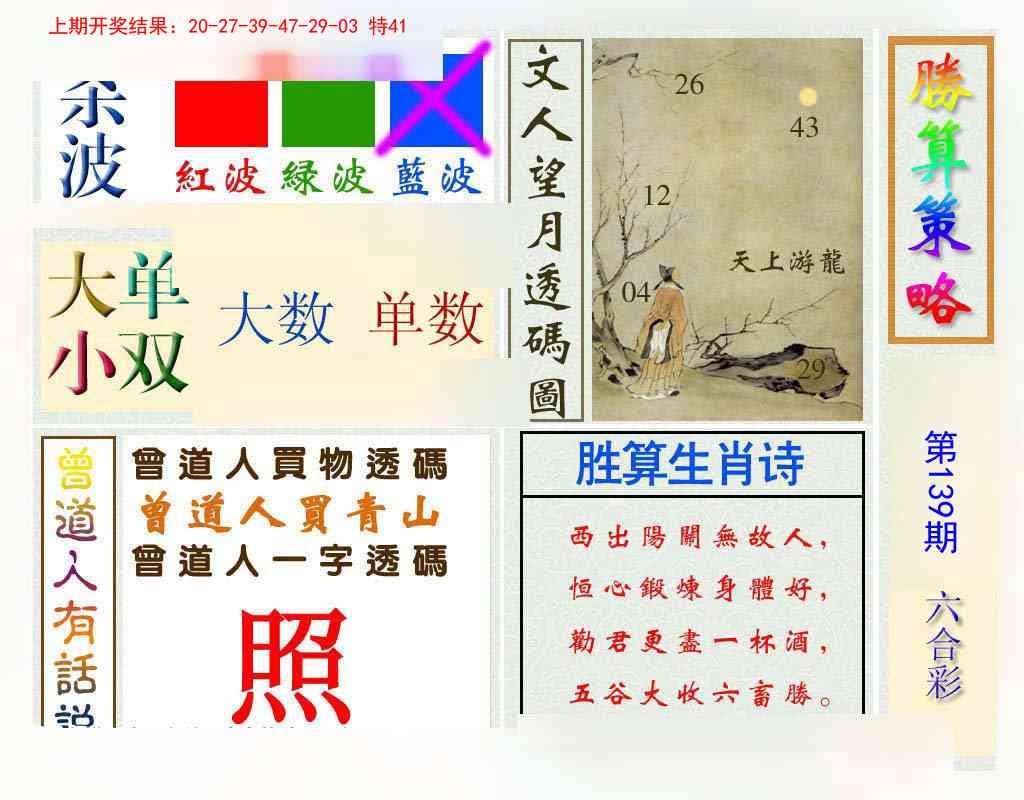 上期开奖结果：20-27-39-47-29-03 特41
杀波
紅波 緑波 藍波
大小
单双
大数 单数
文人望月透碼圖
26
43
12
天上游龍
04
29
勝算策略
曾道人有話説
曾道人買物透碼
曾道人買青山
曾道人一字透碼
照
胜算生肖诗
西出陽關無故人，
恒心鍛煉身體好，
勸君更盡一杯酒，
五谷大收六畜勝。
第139期
六合彩